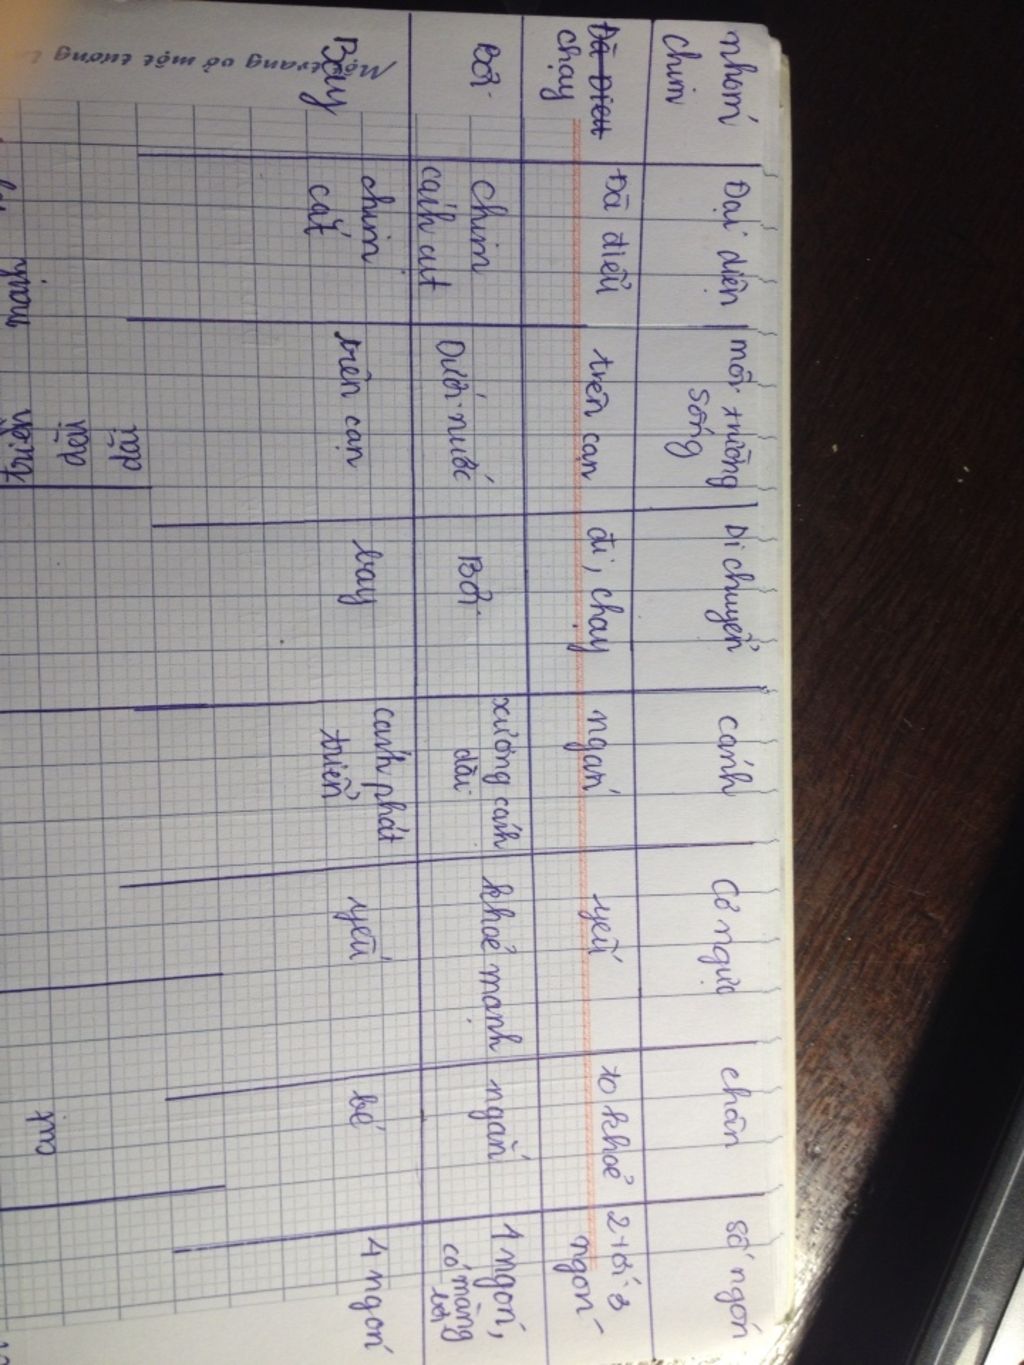 nhóm chim
Đại diện
môi trường sống
Di chuyển
cánh
Cơ ngực
chân
số ngón
chạy
Đà điểu
trên cạn
đi, chạy
ngắn
yếu
to khoẻ
2 tới 3 ngón
Bơi
chim cánh cụt
Dưới nước
Bơi
xương cánh dài
khoẻ mạnh
ngắn
4 ngón, có màng bơi
Bay
chim cắt
trên cạn
bay
cánh phát triển
yếu
bé
4 ngón
dài
mạnh
triển
cụt